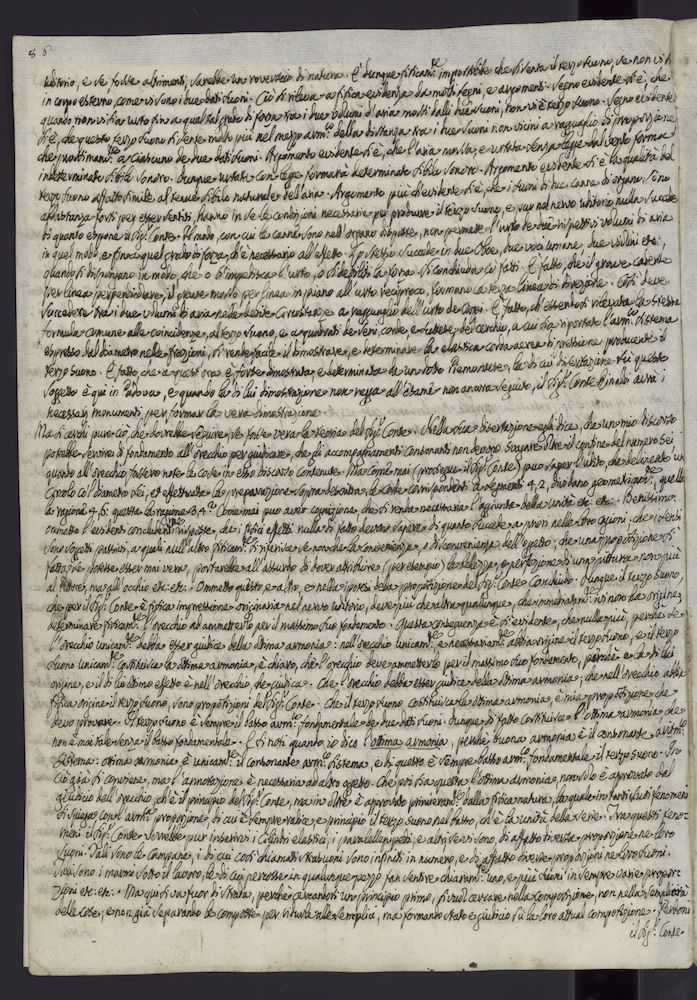 86
uditorio, e se fosse altrimenti, sarebbe un rovescio di natura. È dunque fisicam.te impossibile che si senta il terzo suono, se non vi è
in corpo esterno, come vi sono i due dati suoni. Ciò si rileva a fisica evidenza da molti segni, e argomenti. Segno evidente è, che
quando non vi sia urto fino a quel tal grado di forza tra i due volumi d'aria mossi dalli due suoni, non vi è terzo suono. Segno evidente
è, che questo terzo suono si sente molto più nel mezzo arm.co della distanza tra i due suoni non vicini a ragguaglio di proporzione
che prossimam.te a ciascuno de due dati suoni. Argomento evidente si è, che l'aria mossa, e urtata senza legge dal vento forma
indeterminato sibilo sonoro. Dunque urtata con legge formarà determinato sibilo sonoro. Argomento evidente si è la qualità del
terzo suono affatto simile al tenue sibilo naturale dell'aria. Argomento più ch'evidente si è, che i suoni di due canne di organo sono
abbastanza forti per esser sentiti, hanno in se le condizioni necessarie per produrre il terzo suono, e pur nel nervo uditorio nulla succede
di quanto espone il Sig.r Conte. Il modo, con cui le canne sono nell'organo disposte, non permette l'urto de due rispettivi volumi di aria
in quel modo, e fino a quel grado di forza, ch'è necessario all'effetto. Lo stesso succede in due Oboe, due voci umane, due violini etc.,
quando si dispongano in modo, che o s'impedisca l'urto, o si debiliti la forza. Si conchiuda coi fatti. È fatto, che il grave cadente
per linea perpendicolare, il grave mosso per linea in piano all'urto reciproco, formano la terza linea di direzione. Così deve
succedere tra i due volumi di aria nelle dette circostanze a ragguaglio dell'urto de Corpi. È fatto, ch'essendosi ricercata la stessa
formula comune alle coincidenze, al terzo suono, e a quadrati de veri corde, e sistema del cerchio, a cui sia riportato l'arm.co sistema
espresso dal diametro nelle frazioni, si rende facile il dimostrare, e determinare la elastica corda aerea di pressione producente il
terzo suono. È fatto che a quest'ora è forse dimostrata, e determinata da un dotto Piemontese, la di cui dissertazione su questo
soggetto è qui in Padova, e quando la di lui dimostrazione non regga all'esame non ancora seguito, il Sig.r Conte Rinaldi avrà i
necessarj monumenti per formar la vera dimostrazione.
Ma si cerchi pure ciò, che dovrebbe seguire, se fosse vera la teoria del Sig.r Conte. Nella sua dissertazione egli dice, che un mio discorso
potrebbe servire di fondamento all'orecchio per giudicare, che gli accompagnamenti consonanti non devono scappare oltre il confine del numero sei
quanto all'orecchio fossero note le cose in esso discorso contenute. Ma come mai (prosegue il Sig.r Conte) può saper l'udito, che delineato un
Circolo col diametro sei, ed effettuata la preparazione sopra descritta, le corde corrispondenti a segmenti 4, 2, sue dano geometricam.te, quella
la ragione 4,6; questa la ragione 3,4? Come mai può aver cognizione, che si renda necessaria l'aggiunta della unità etc. etc. Benissimo.
Ommetto l'evidenti concludentissime risposte, che i fisici effetti nulla di fatto devono sapere di quanto succede a priori nelle loro ragioni; che i sensi
sono soggetti passivi, a quali null'altro fisicam.te si riferisce se non che la convenienza, o disconvenienza dell'oggetto; che una proposizione sì
fatta, se potesse esser mai vera, porterebbe all'assurdo di dover attribuire (per esempio) la bellezza, e perfezione di una pittura non più
al Pittore, ma all'occhio etc. etc. Ommetto questo, e altro, e nella ipotesi della proposizione del Sig.r Conte conchiudo: Dunque il terzo suono,
che per il Sig.r Conte è fisica impressione originaria nel nervo uditorio, deve più che altra qualunque, che immediatam.te ivi non ha origine,
determinare fisicam.te l'orecchio ad ammetterlo per il massimo suo fondamento. Questa conseguenza è sì evidente, che nulla più, perchè se
l'orecchio unicam.te debba esser giudice della ottima armonia: nell'orecchio unicam.te e necessariam.te abbia origine il terzo suono, e il terzo
suono unicam.te costituisca la ottima armonia, è chiaro, che l'orecchio deve ammetterlo per il massimo suo fondamento, perchè e la di lui
origine, e il di lui ottimo effetto è nell'orecchio, che giudica. Che l'orecchio debba esser giudice della ottima armonia; che nell'orecchio abbia
fisica origine il terzo suono, sono proposizioni del Sig.r Conte. Che il terzo suono costituisca la ottima armonia, è mia proposizione che
devo provare. Il terzo suono è sempre il basso arm.co fondamentale de due dati suoni. Dunque di fatto costituisce l'ottima armonia che
non è mai tale senza il basso fondamentale. E si noti quanto io dico l'ottima armonia, perchè buona armonia è il consonante arm.co
sistema: ottima armonia è unicam.te il consonante arm.co sistema, e di questo è sempre basso arm.co fondamentale il terzo suono. In
ciò già si conviene, ma l'annotazione è necessaria ad altro oggetto. Che poi sia questa l'ottima armonia, non solo è approvato dal
giudicio dell'orecchio, ch'è il principio del Sig.r Conte, ma in oltre è approvato primieram.te dalla fisica natura, la quale in tanti suoi fenomeni
si spiega con l'arm.ca proporzione, di cui è sempre radice, e principio il terzo suono nel fatto, che è la unità della serie. Tra questi feno-
meni il Sig.r Conte vorrebbe pur inserirvi i cilindri elastici, i parallelepipedi, e altri se vi sono, di affatto diversa proporzione ne loro
suoni. Tali sono le Campane, i di cui così chiamati strabuoni sono infiniti in numero, e di affatto diverse proporzioni ne loro suoni.
Tali sono i marmi sotto il lavoro, se di cui percosse in qualunque pezzo fan sentire chiaram.te uno, e più suoni in sempre varie propor-
zioni etc. etc. Ma qui si va fuor di strada, perchè cercandosi un principio primo, si vuol cercare nella composizione, non nella semplicità
delle cose, e non già separando le composte per ridurle alle semplici, ma formando stato e giudicio su la loro attual composizione. Perdoni
il Sig.r Conte.